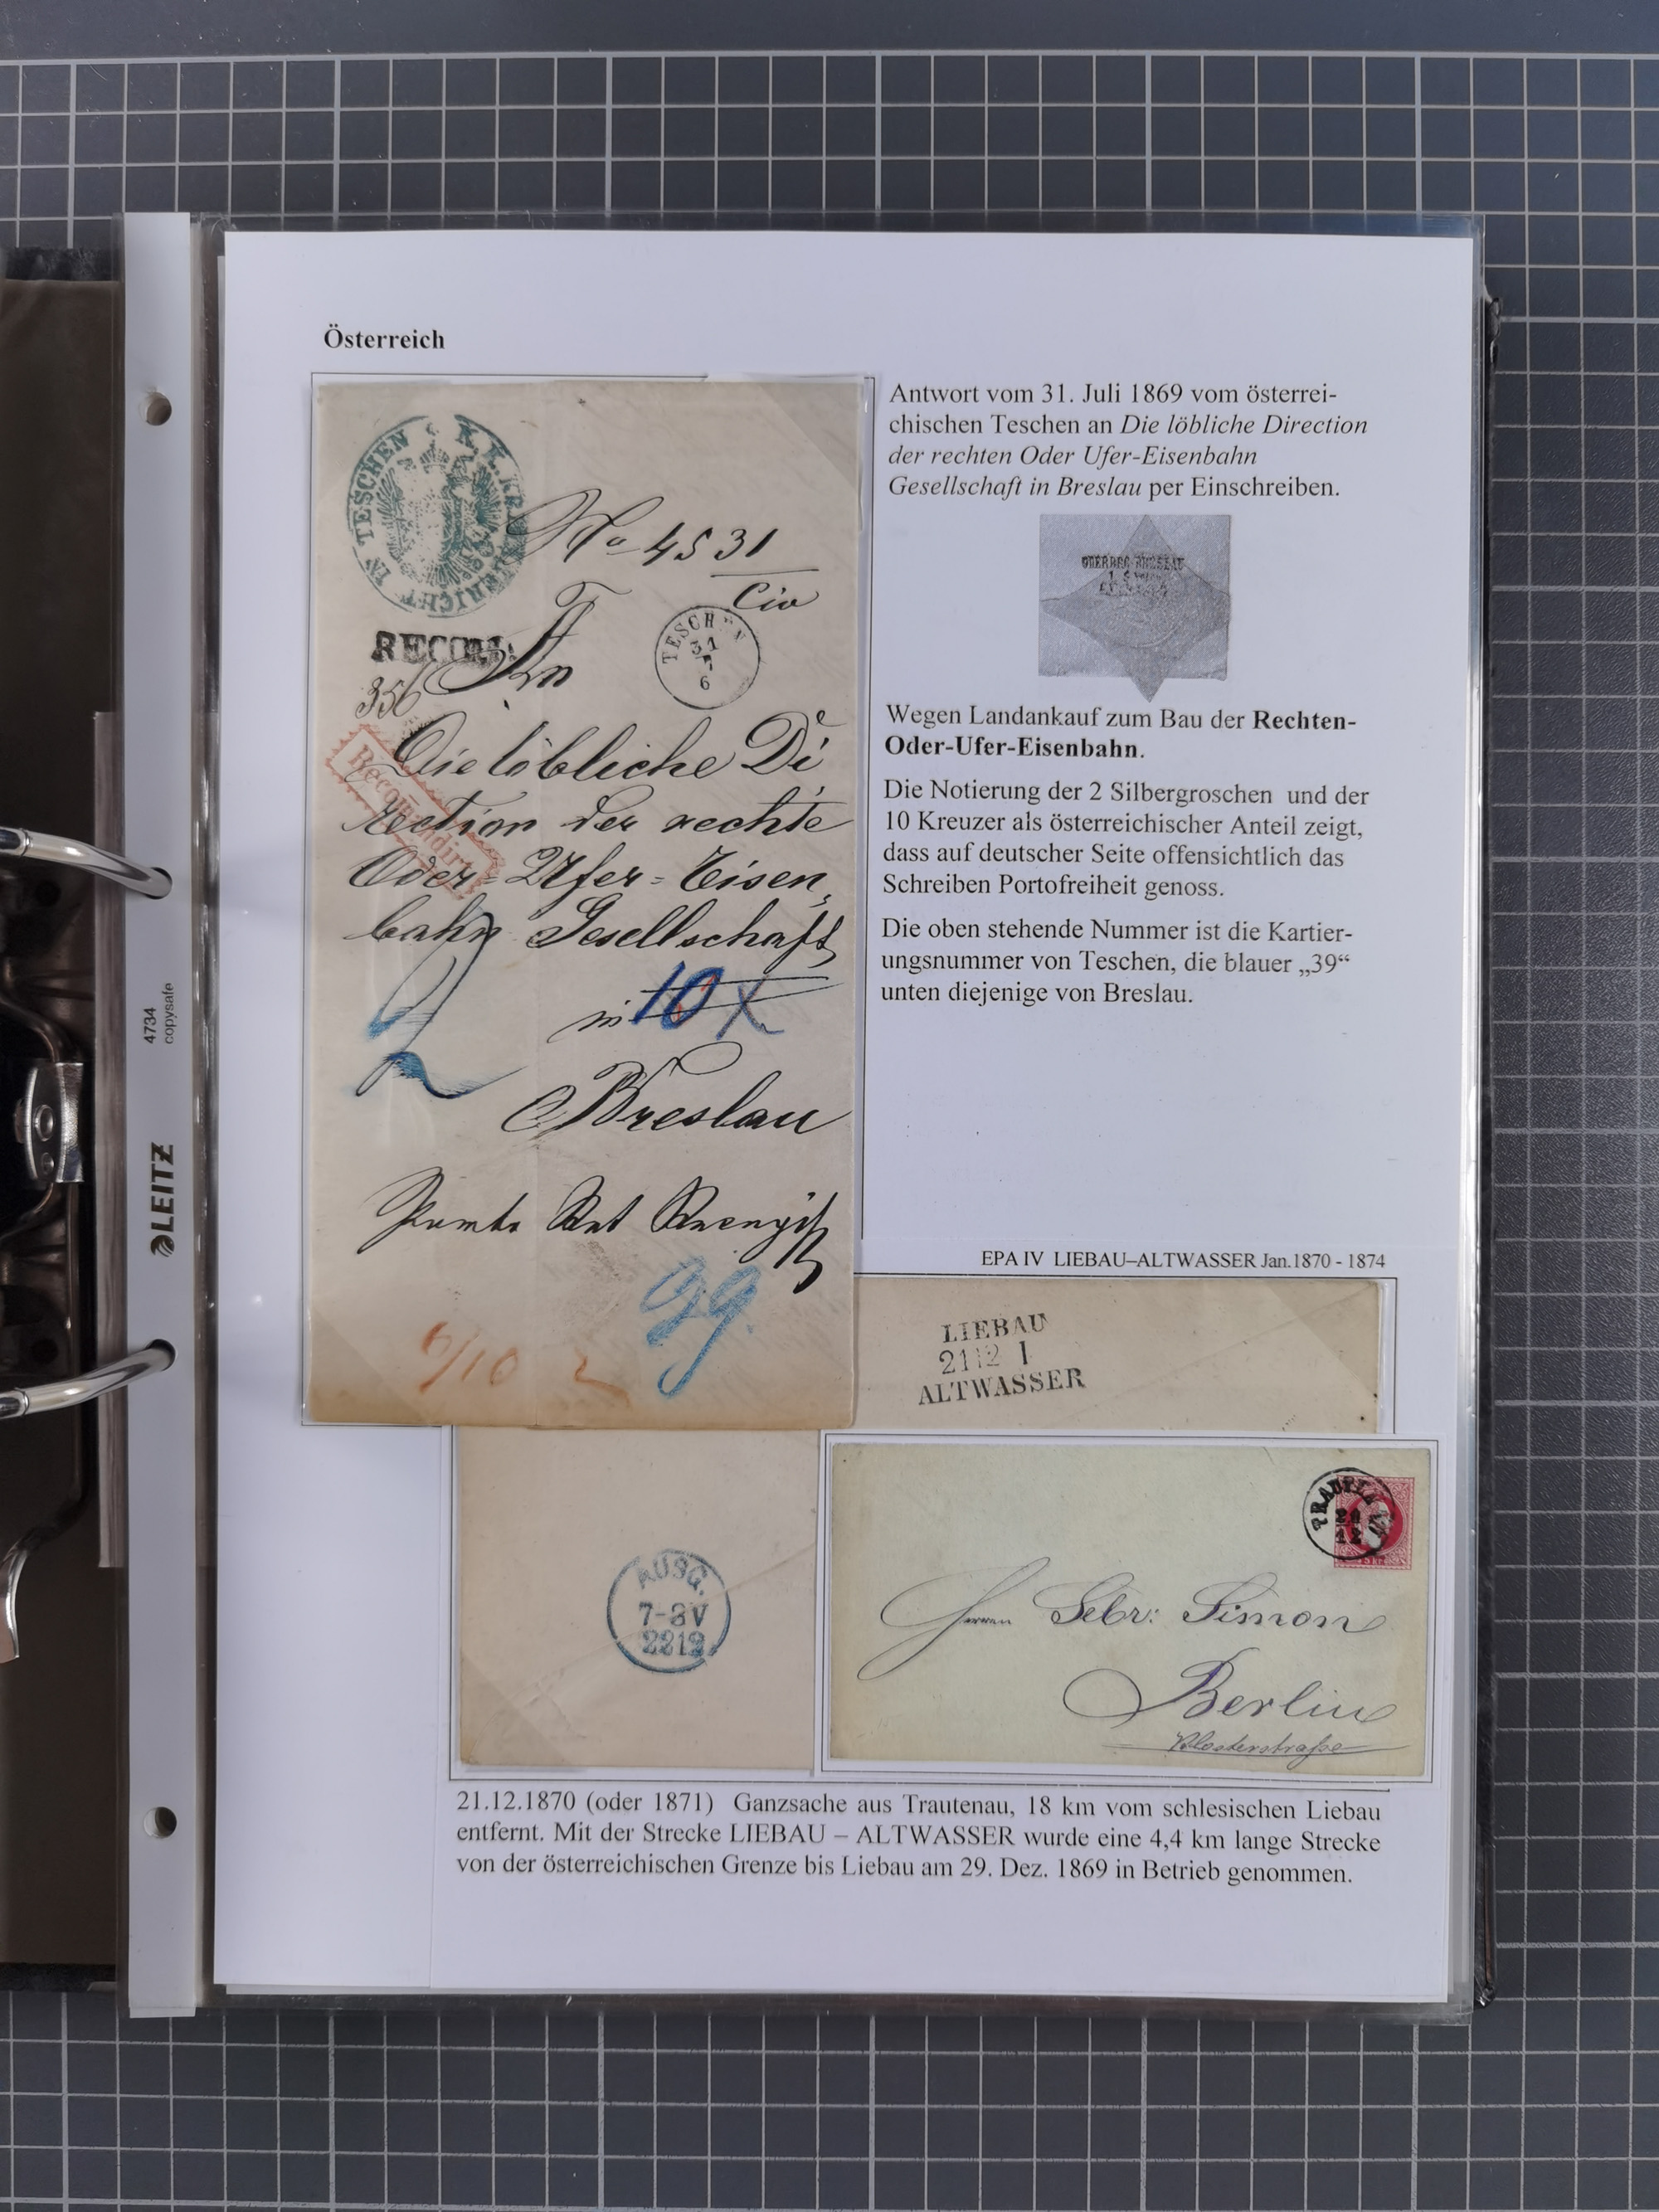 Österreich
IN TESCHEN
No 4531
Civ
RECOM:
356
An
TESCHEN
31
7
6
Recomandirt
Die löbliche Di
rection der rechte
Oder=Ufer=Eisen
bahn Gesellschaft
in
10 X
2
Breslau
99.
6/10 2
Antwort vom 31. Juli 1869 vom österrei-
chischen Teschen an Die löbliche Direction
der rechten Oder Ufer-Eisenbahn
Gesellschaft in Breslau per Einschreiben.
ODERBRG BRESLAU
Wegen Landankauf zum Bau der Rechten-
Oder-Ufer-Eisenbahn.
Die Notierung der 2 Silbergroschen und der
10 Kreuzer als österreichischer Anteil zeigt,
dass auf deutscher Seite offensichtlich das
Schreiben Portofreiheit genoss.
Die oben stehende Nummer ist die Kartier-
ungsnummer von Teschen, die blauer „39“
unten diejenige von Breslau.
EPA IV LIEBAU–ALTWASSER Jan.1870 - 1874
LIEBAU
21 12 I
ALTWASSER
AUSG.
7-8V
2212
TRAUTENAU
5 kr
Herren Gebr: Simon
Berlin
Klosterstraße
21.12.1870 (oder 1871) Ganzsache aus Trautenau, 18 km vom schlesischen Liebau
entfernt. Mit der Strecke LIEBAU – ALTWASSER wurde eine 4,4 km lange Strecke
von der österreichischen Grenze bis Liebau am 29. Dez. 1869 in Betrieb genommen.
4734
copysafe
LEITZ